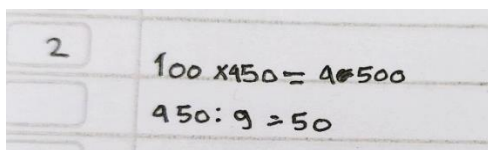 2
100 x450 = 4500
450 : 9 = 50